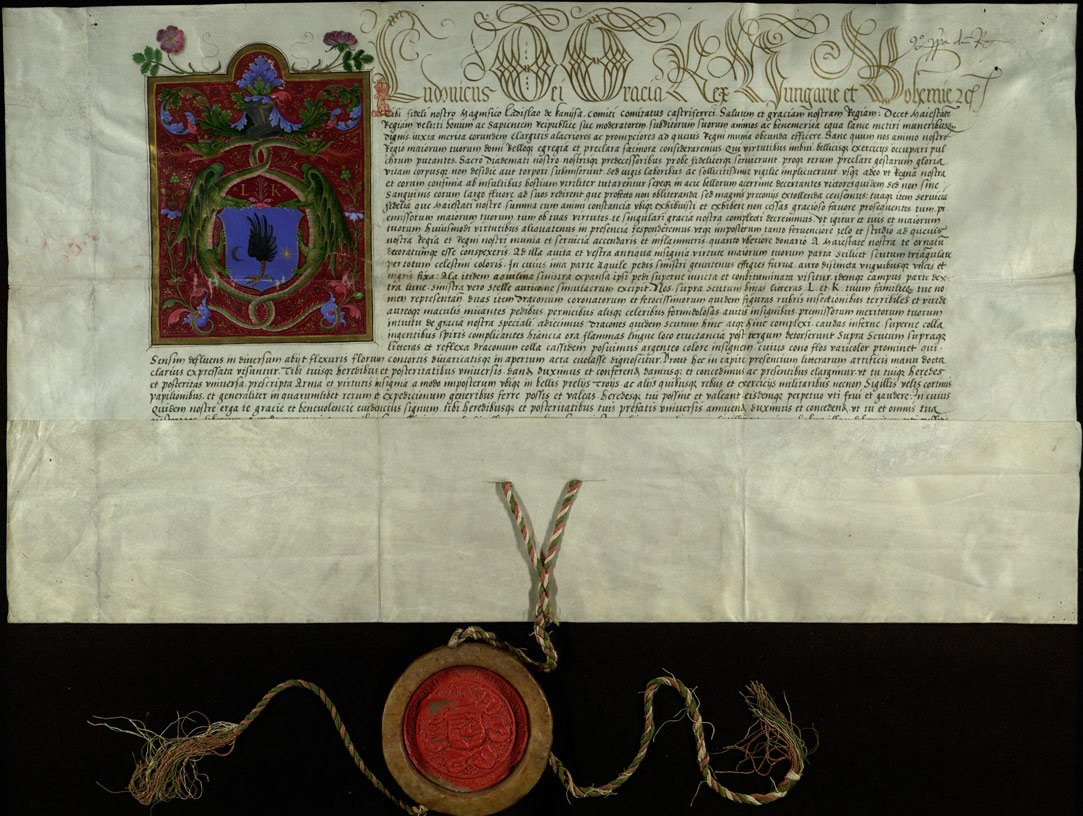 Ludovicus Dei Gracia Rex Hungarie et Bohemie
Tibi fideli nostro Magnifico Ladislao de Kanisa. Comiti Comitatus castriferrei Salutem et graciam nostram Regiam: Decet Maiestatē
Regiam veluti bonum ac Sapientem Reipublice sue moderatorem subditorum suorum animos ac benemerita equa lance metiri muneribusqꝫ
dignis iuxta merita eorundem elargitis alacriores ac prompciores ad queuis Regni munia obeunda efficere. Hanc quum nos animo nostro
Regio maiorum tuorum domi Belloqꝫ egregia et preclara facinora consideraremus. Qui virtutibus imbui, bellicisqꝫ exerciciis occupari pul
chrum putantes. Sacro Diademati nostro nostrisqꝫ predecessoribus probe fideliterqꝫ servierunt proqꝫ rerum preclare gestarum gloria
vitam corpusqꝫ non desidie aut torpori submiserunt. Sed vigiis laboribus ac sollicitissime vigilie implicuerunt vsqꝫ adeo vt Regna nostra
et eorum confinia ab insultibus hostium viriliter tutarentur sepeqꝫ in acie bellorum acerrime decertantes victores quidem sed non sine
Sanguinis eorum largo fluore ad suos redirent que profecto non obliteranda sed magis preconiis extollenda censemus: tuaqꝫ item servicia
fidelia que Maiestati nostre summa cum animi constancia vbiqꝫ exhibuisti et exhibere non cessas gracioso favore prosequentes tum p̄
emissorum maiorum tuorum, tum ob tuas virtutes te singulari gracia nostra complecti decrevimus. Vt igitur et tuis et maiorum
tuorum huiusmodi virtutibus aliquatenus in presencia responderemus vtqꝫ imposterum tanto ferventiore zelo et studio ad quevis
nostra Regia et Regni nostri munia et servicia accendaris et inflammeris quanto vberiore donario A Maiestate nostra te ornatū
decoratumqꝫ esse conspexeris. Ad illa avita et vestra antiqua insignia virtute maiorum tuorum parta Scilicet scutum triangulare
per totum celestini coloris. In cuius ima parte Aquile pedis sinistri genuitenus effigies furva, auro distincta vnguibusqꝫ vncis et
nigris fixa: Ala itidem aquilina sinistra expansa ipsi pedi superne iniuncta et continuata visitur itemqꝫ campus parte dex
tra lune. Sinistra vero stelle aureum simulacrum excipit. Nos supra scutum binas literas. L. et K. tuum familieqꝫ tue no
men representantes duas item draconum coronatorum et ferocissimorum quidem figuras rubris insectionibus terribiles et viride
aureoqꝫ maculis micantes pedibus pernicibus alisqꝫ celeribus formidolosas avitis insignibus premissorum meritorum tuorum
intuitu de gracia nostra speciali adiecimus Dracones quidem scutum hinc atqꝫ hinc complexi caudas inferne superne colla
ingentibus spiris complicantes hiancia ora flammas lingue loco eructancia post tergum detorserunt Supra Scutum supraqꝫ
literas et reflexa draconum colla cassidem posuimus argenteo colore insignem cuius cono flos varicolor prominet qui
Sensim defluens in diversum abiit flexuris florum contortis divaricatisqꝫ in apertum aera evolasse dignoscitur. Prout hec in capite presencium literarum artificis manu docta
clarius expressata visuntur. Tibi tuisqꝫ heredibus et posteritatibus vniversis danda duximus et conferenda damusqꝫ et concedimus ac presentibus elargimur vt tu heredes
et posteritas vniversa prescripta Arma et virtutis insignia a modo imposterum vbiqꝫ in bellis preliis Troys ac aliis quibusqꝫ rebus et exerciciis militaribus necnon Sigillis velis cortinis
papilionibus, et generaliter in quarumlibet rerum et Expedicionum generibus ferre possis et valeas heredesqꝫ tui possint et valeant eisdemqꝫ perpetuo vti frui et gaudere. In cuius
quidem nostre erga te gracie et benevolencie evidencius signum tibi heredibusqꝫ et posteritatibus tuis prefatis vniversis annuenda duximus et concedenda vt tu et omnis tua
L K